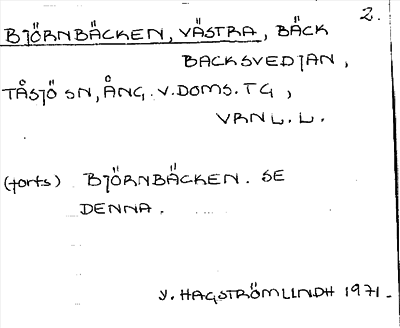 2.
BJÖRNBÄCKEN, VÄSTRA, BÄCK
BACKSVEDJAN,
TÅSJÖ SN, ÅNG. V. DOMS. TG,
VRNL.L.
(forts) BJÖRNBÄCKEN. SE
DENNA.
Y. HAGSTRÖMLINDH 1971.